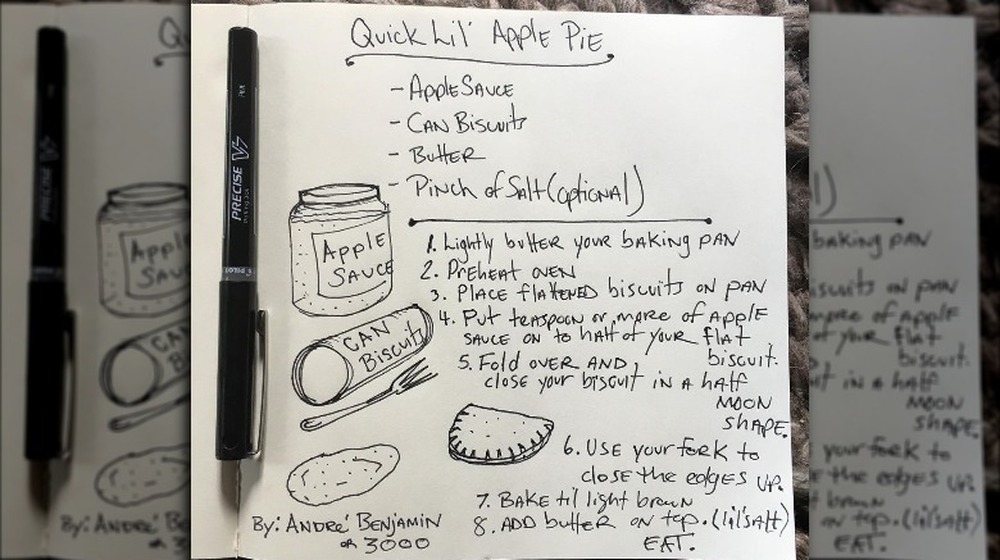 Quick Lil' Apple Pie
- Apple Sauce
- Can Biscuits
- Butter
- Pinch of Salt (optional)
PRECISE V5
PILOT
Apple
Sauce
Can
Biscuits
1. Lightly butter your baking pan
2. Preheat oven
3. Place flattened biscuits on pan
4. Put teaspoon or more of apple
sauce on to half of your flat
biscuit.
5. Fold over and
close your biscuit in a half
moon
shape.
6. Use your fork to
close the edges up.
7. Bake til light brown
8. Add butter on top. (lil' salt)
Eat.
By: André Benjamin
or 3000